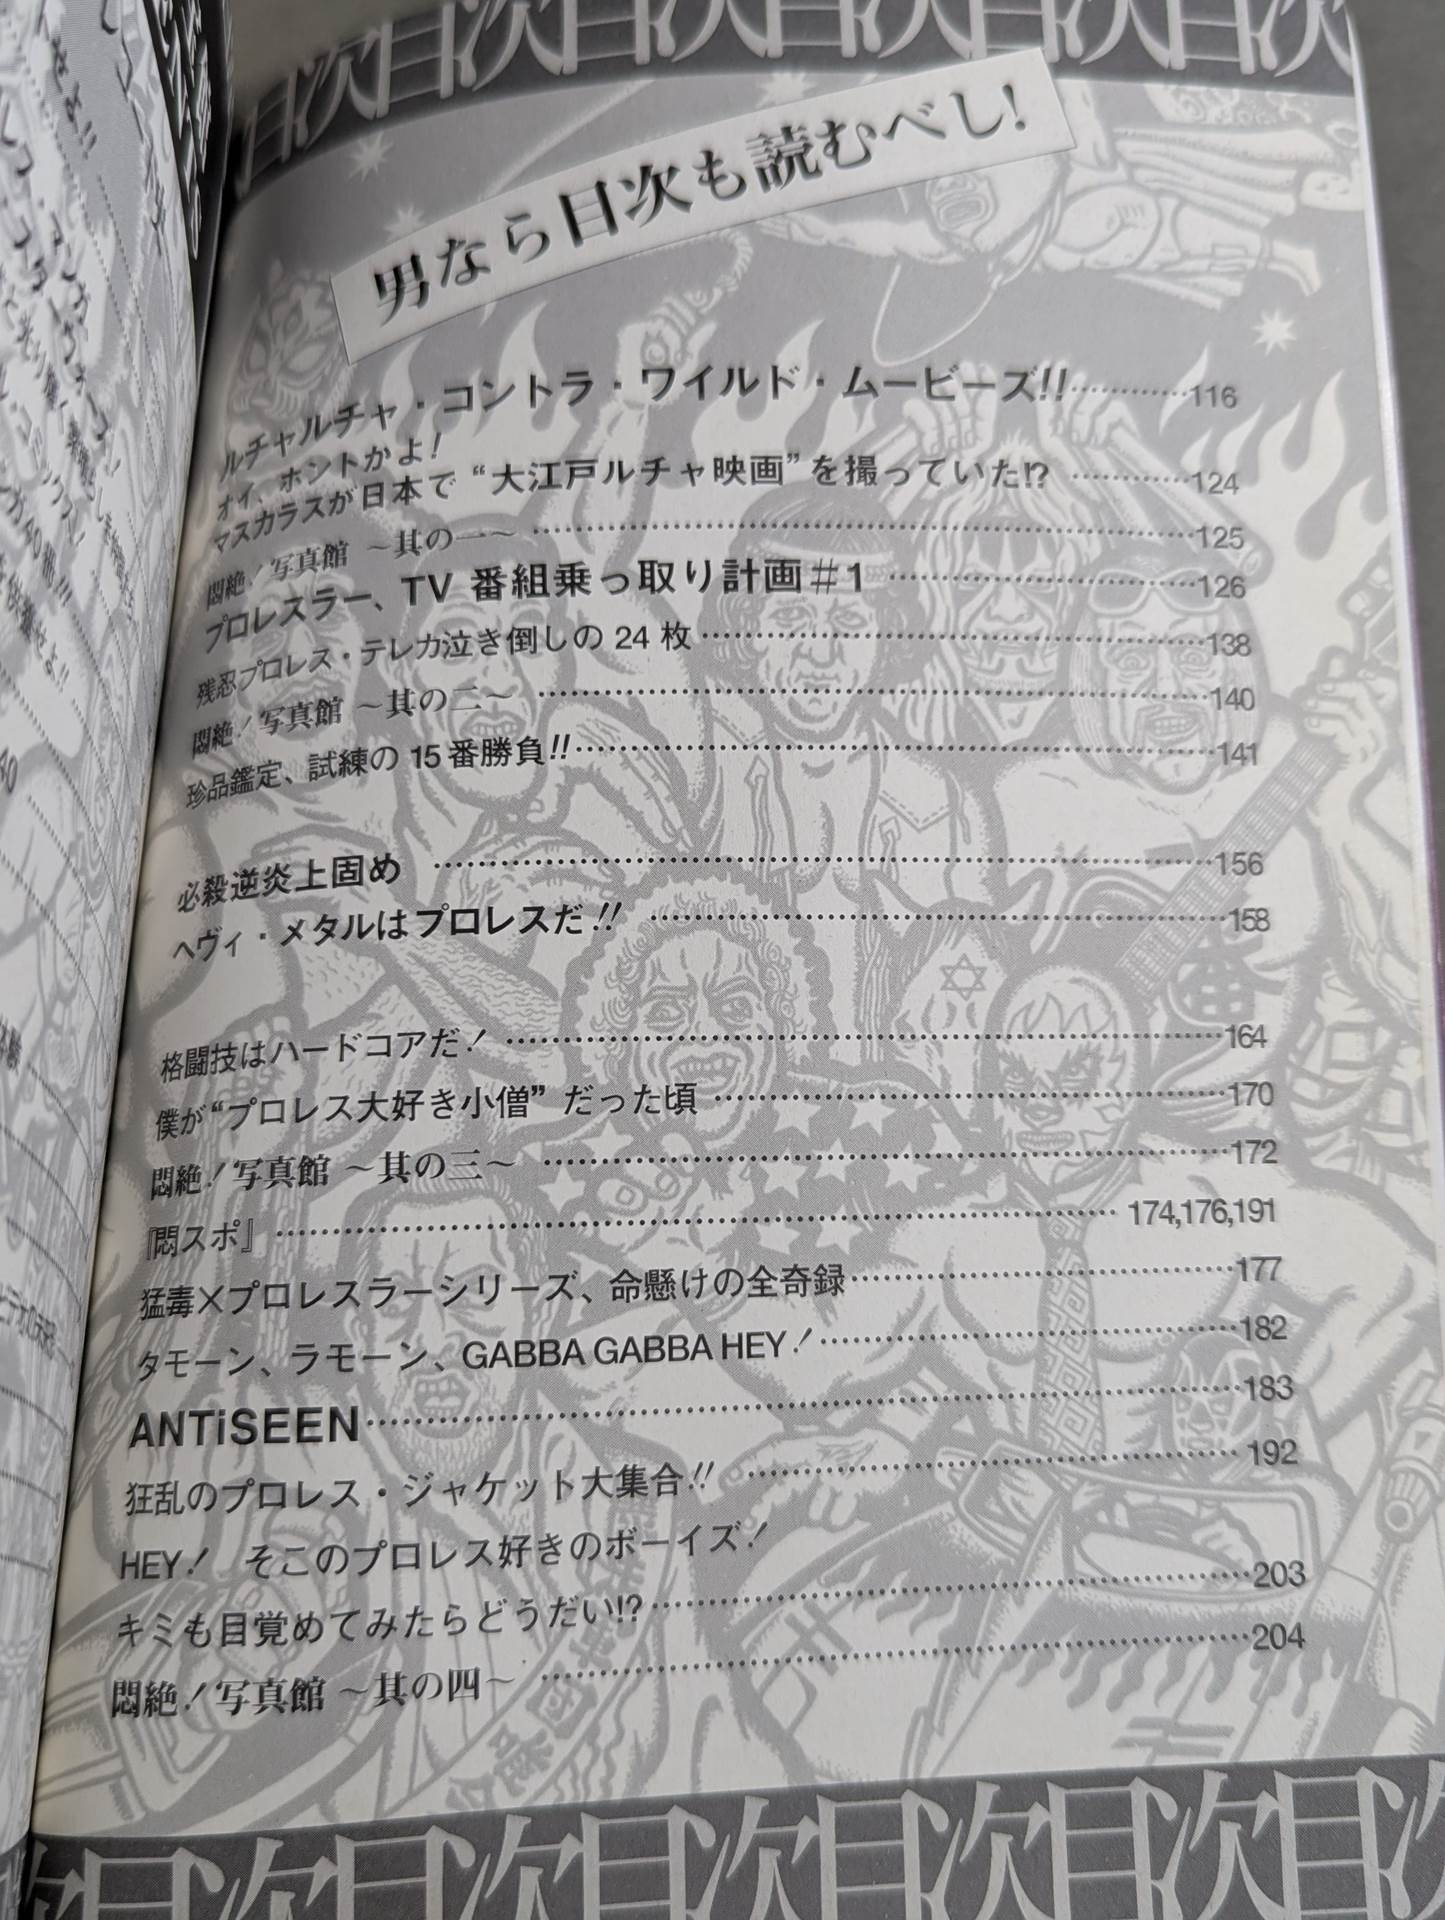 目次目次目次目次目次目次目次
男なら目次も読むべし!
ルチャルチャ・コントラ・ワイルド・ムービーズ!!…………116
オイ、ホントかよ!
マスカラスが日本で“大江戸ルチャ映画”を撮っていた!?…………124
悶絶!写真館 〜其の一〜…………125
プロレスラー、TV 番組乗っ取り計画#1…………126
残忍プロレス・テレカ泣き倒しの 24 枚…………138
悶絶!写真館 〜其の二〜…………140
珍品鑑定、試練の 15 番勝負!!…………141
必殺逆炎上固め…………156
ヘヴィ・メタルはプロレスだ!!…………158
格闘技はハードコアだ!…………164
僕が“プロレス大好き小僧”だった頃…………170
悶絶!写真館 〜其の三〜…………172
『悶スポ』…………174,176,191
猛毒×プロレスラーシリーズ、命懸けの全奇録…………177
タモーン、ラモーン、GABBA GABBA HEY!…………182
ANTiSEEN…………183
狂乱のプロレス・ジャケット大集合!!…………192
HEY! そこのプロレス好きのボーイズ!
キミも目覚めてみたらどうだい!?…………203
悶絶!写真館 〜其の四〜…………204
目次目次目次目次目次目次